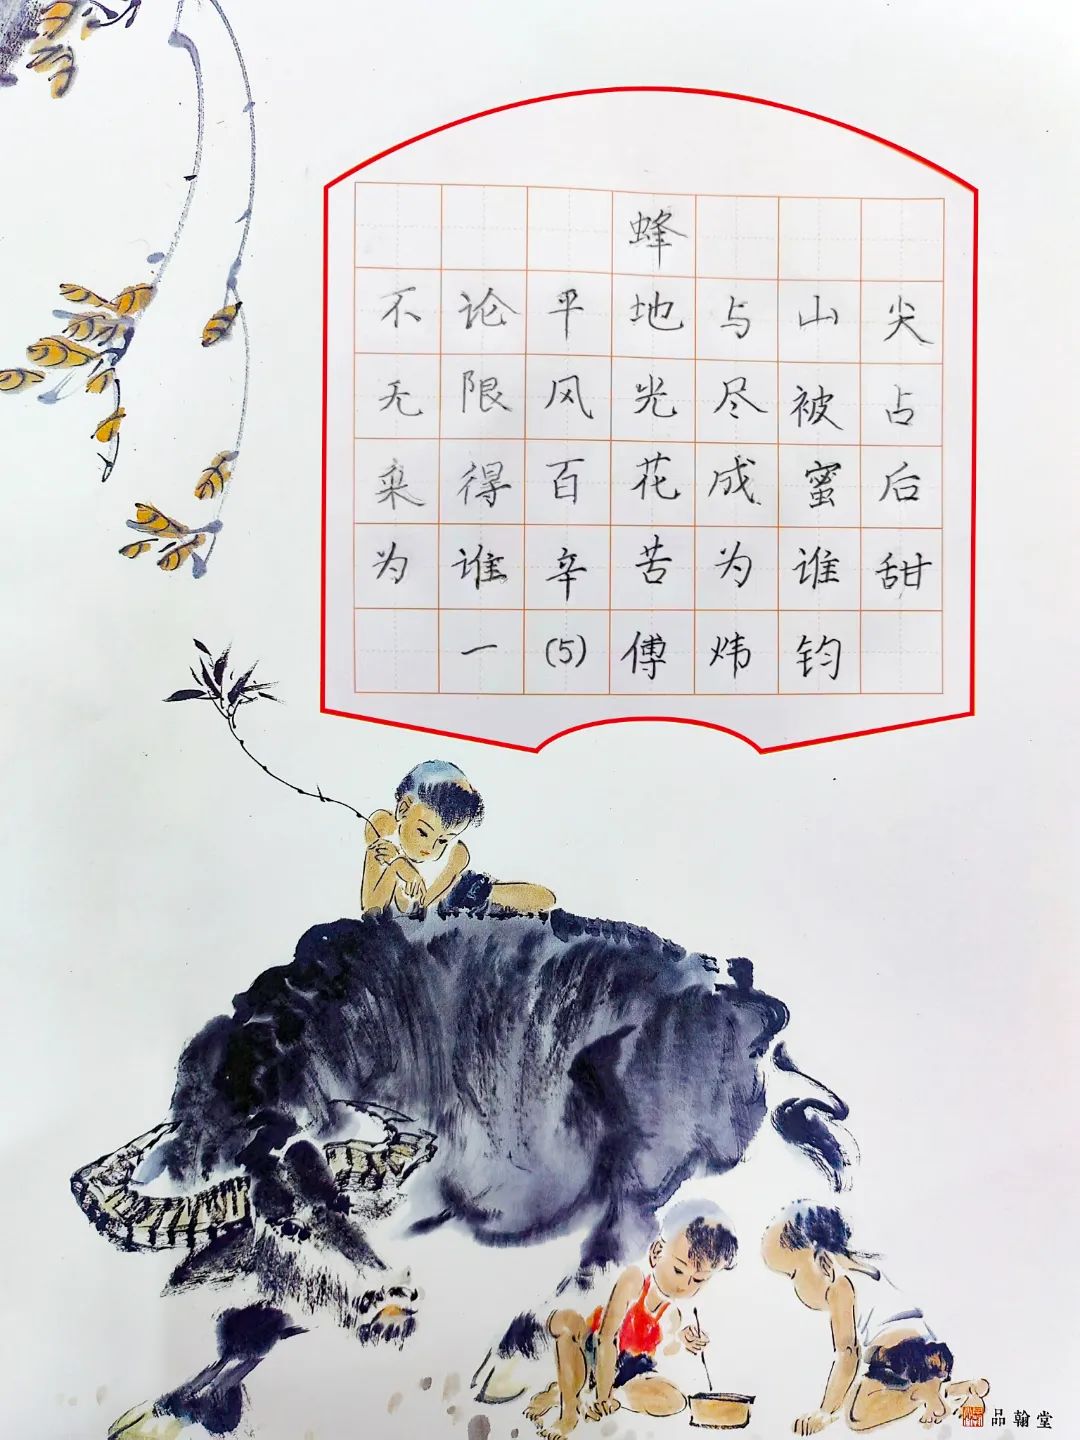 蜂
不论平地与山尖
无限风光尽被占
采得百花成蜜后
为谁辛苦为谁甜
一(5)傅炜钧
品翰堂